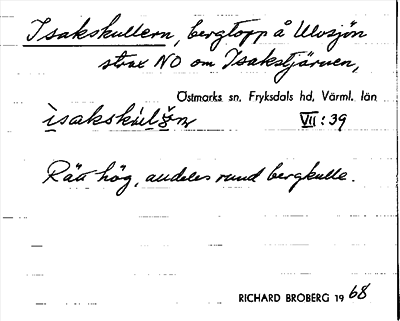 Isakskullern, bergtopp å Ulvsjön
strax NO om Isakstjärnen,
Östmarks sn, Fryksdals hd, Värml. län
VII:39
Rätt hög, alldeles rund bergkulle.
RICHARD BROBERG 1968